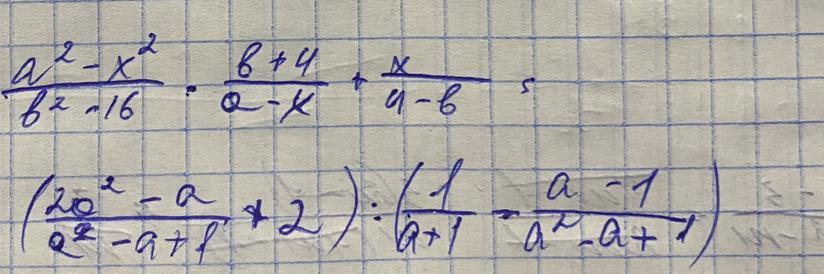 (a² - x²)/(b² - 16) · (b + 4)/(a - x) + x/(4 - b) ;
((2a² - a)/(a² - a + 1) + 2) : (1/(a + 1) - (a - 1)/(a² - a + 1))